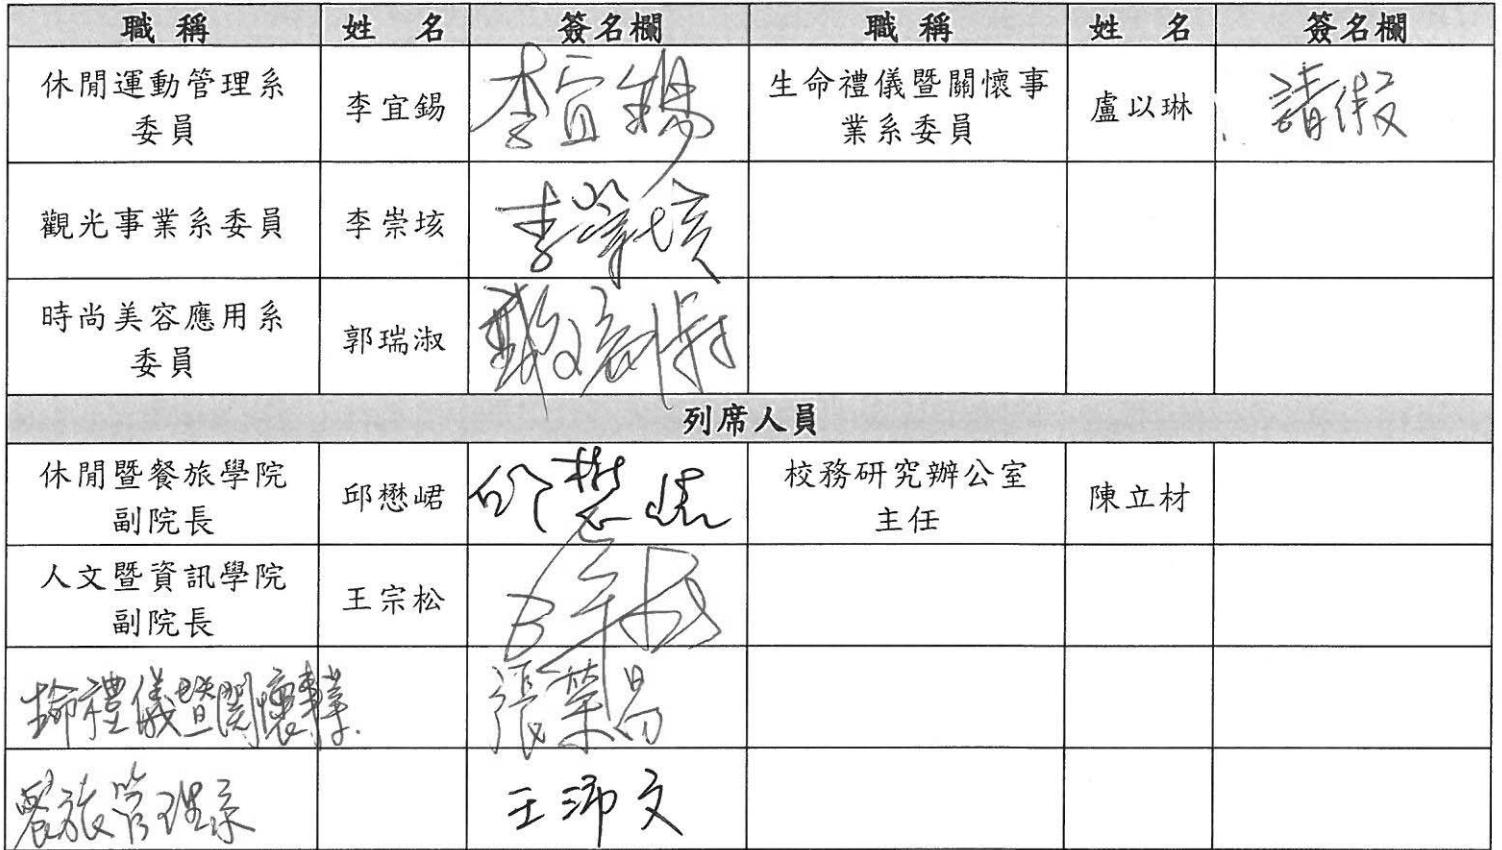 職稱 姓名 簽名欄 職稱 姓名 簽名欄
休閒運動管理系
委員
李宜錫 李宜錫
生命禮儀暨關懷事
業系委員
盧以琳 請假
觀光事業系委員 李崇垓 李崇垓
時尚美容應用系
委員
郭瑞淑
列席人員
休閒暨餐旅學院
副院長
邱懋峮 邱懋峮
校務研究辦公室
主任
陳立材
人文暨資訊學院
副院長
王宗松
生命禮儀暨關懷事業 張榮昌
餐旅管理系 王沛文